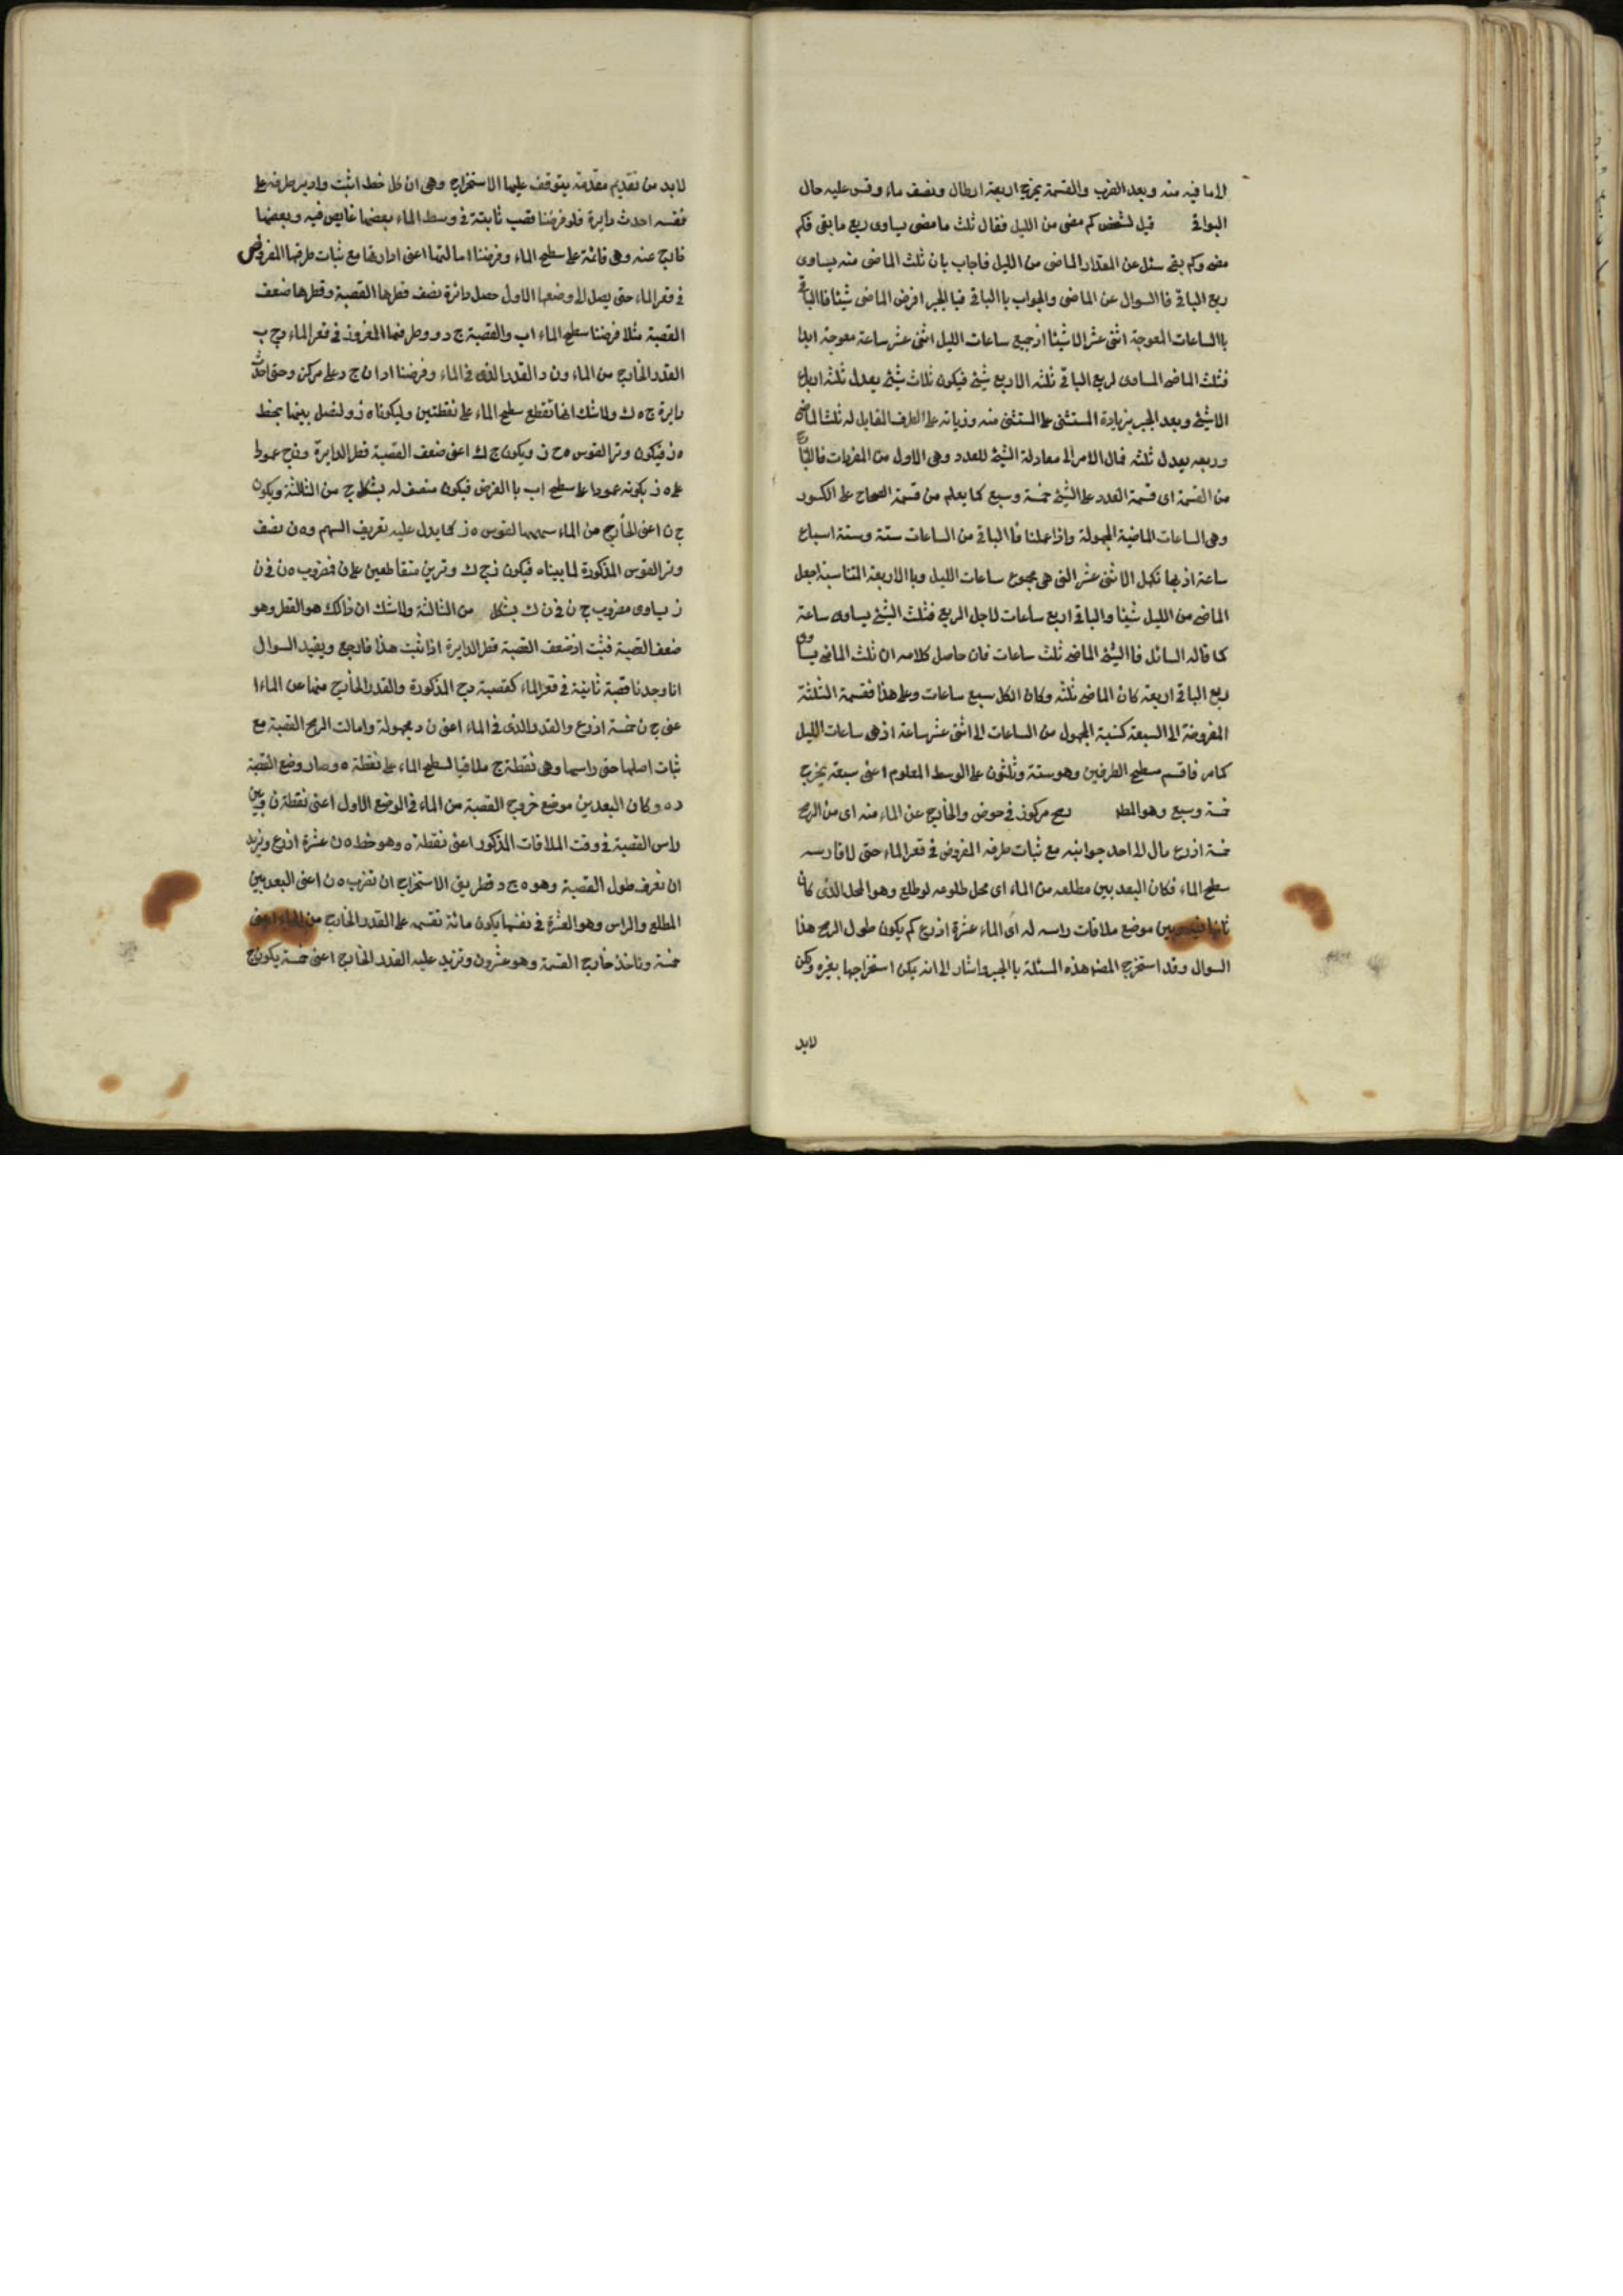 الا ما فيه منه وبعد الضرب والقسمة يخرج اربعة ارطال ونصف ماء وقس عليه حال
البواقي قيل لشخص كم مضى من الليل فقال ثلث ما مضى يساوى ربع ما بقى فكم
مضى وكم بقى سئل عن المقدار الماضى من الليل فاجاب بان ثلث الماضى منه يساوى
ربع الباقى فاالسوال عن الماضى والجواب باالباقى فبالجبر افرض الماضى شيئا فاالباقى
باالساعات المعوجة اثنى عشر الا شيئا اذ جميع ساعات الليل اثنى عشر ساعة معوجة ابدا
فثلث الماضى المساوى لربع الباقى ثلثه الا ربع شئ فيكون ثلاث شئ يعدل ثلثه ارباع
الا شئ وبعد الجبر بزيادة المستثنى على المستثنى منه وزياته على الطرف المقابل له ثلث الماضى
وربعه يعدل ثلثه فمال الامر الى معادلة الشئ للعدد وهى الاول من المفردات فالخارج
من القسمة اى قسمة العدد على الشئ خمسة وسبع كما يعلم من قسمة الصحاح على الكسور
وهى الساعات الماضية المجهولة واذا عملنا فا الباقى من الساعات ستة وستة اسباع
ساعة اذ بها تكمل الاثنى عشر التى هى مجموع ساعات الليل وباالاربعة المتناسبة اجعل
الماضى من الليل شيئا والباقى اربع ساعات لاجل الربع فثلث الشئ يساوى ساعة
كما قاله السائل فاالشئ الماضى ثلث ساعات فان حاصل كلامه ان ثلث الماضى يساوى
ربع الباقى اربعة كان الماضى ثلثه وكان الكل سبع ساعات وعلى هذا فقسمة الثلثة
المفروضة الى السبعة كنسبة المجهول من الساعات الى اثنى عشر ساعة اذ هى ساعات الليل
كما مر فاقسم مسطح الطرفين وهو ستة وثلثون على الوسط المعلوم اعنى سبعة يخرج
خمسة وسبع وهو المط رمح مركوز فى حوض والخارج عن الماء منه اى من الرمح
خمسة اذرع مال الى احد جوانبه مع ثبات طرفه المفروض فى قعر الماء حتى لاقا رسه
سطح الماء فكان البعد بين مطلعه من الماء اى محل طلوعه لو طلع وهو المحل الذى كان
ثابتا فيه وبين موضع ملاقات راسه له اى الماء عشرة اذرع كم يكون طول الرمح هذا
السوال وقد استخرج المص هذه المسئلة باالجبر واشار الى انه يمكن استخراجها بغيره ولكن
لابد
لابد من تقديم مقدمة يتوقف عليها الاستخراج وهى ان كل خط اثبت وادير طرفه على
نفسه احدث دايرة فلو فرضنا قصب ثابتة فى وسط الماء بعضها غايص فيه وبعضها
خارج عنه وهى قائمة على سطح الماء وفرضنا امالتها اعنى ادارتها مع ثبات طرفها المفروض
فى قعر الماء حتى يصل الى وضعها الاول حصل دائرة نصف قطرها القصبة وقطرها ضعف
القصبة مثلا فرضنا سطح الماء اب والقصبة ج د وطرفها المغروز فى قعر الماء
القدر الخارج من الماء ون د القدر الذى فى الماء وفرضنا ادا ن ج د على مركز وحتى احدث
دايرة ج ه ك ولا شك انها تقطع سطح الماء على نقطتين وليكونا ه ز ولنصل بينهما بخط
ه ز فيكون وتر القوس ه ح ز ويكون ج ك اعنى ضعف القصبة قطر الدايرة ون ج عمودا
على ه ز بكونه عمودا على سطح اب باالفرض فيكون منصف له بشكل ج من الثالثة ويكون
ج ن اعنى الخارج من الماء سهم القوس ه ز كما يدل عليه تعريف السهم وه ن نصف
وتر القوس المذكورة لما بيناه فيكون ز ج ك وترين متقاطعين على ن فمضروب ه ن فى ن
ز يساوى مضروب ج ن فى ن ك بشكل من الثالثة ولا شك ان ذالك هو القطر وهو
ضعف القصبة فثبت ان ضعف القصبة قطر الدايرة اذا ثبت هذا فارجع ويقيد السوال
انا وجدنا قصبة ثانية فى قعر الماء كقصبة المذكورة والقدر الخارج منها عن الماء ا
عنى ج ن خمسة اذرع والقدر الذى فى الماء اعنى ن د مجهولة وامالت الريح القصبة مع
ثبات اصلها حتى راسها وهى نقطة ج ملاقيا لسطح الماء على نقطة ه وصار وضع القصبة
د ه وكان البعد بين موضع خروج القصبة من الماء فى الوضع الاول اعنى نقطة ن وبين
راس القصبة فى وقت الملاقات المذكور اعنى نقطة ه وهو خط ه ن عشرة اذرع ونريد
ان نعرف طول القصبة وهو ه ج د فطريق الاستخراج ان تضرب ه ن اعنى البعد بين
المطلع والراس وهو العشرة فى نفسها يكون مائة نقسمه على القدر الخارج من الماء اعنى
خمسة وناخذ خارج القسمة وهو عشرون ونزيد عليه القدر الخارج اعنى خمسة يكون ج